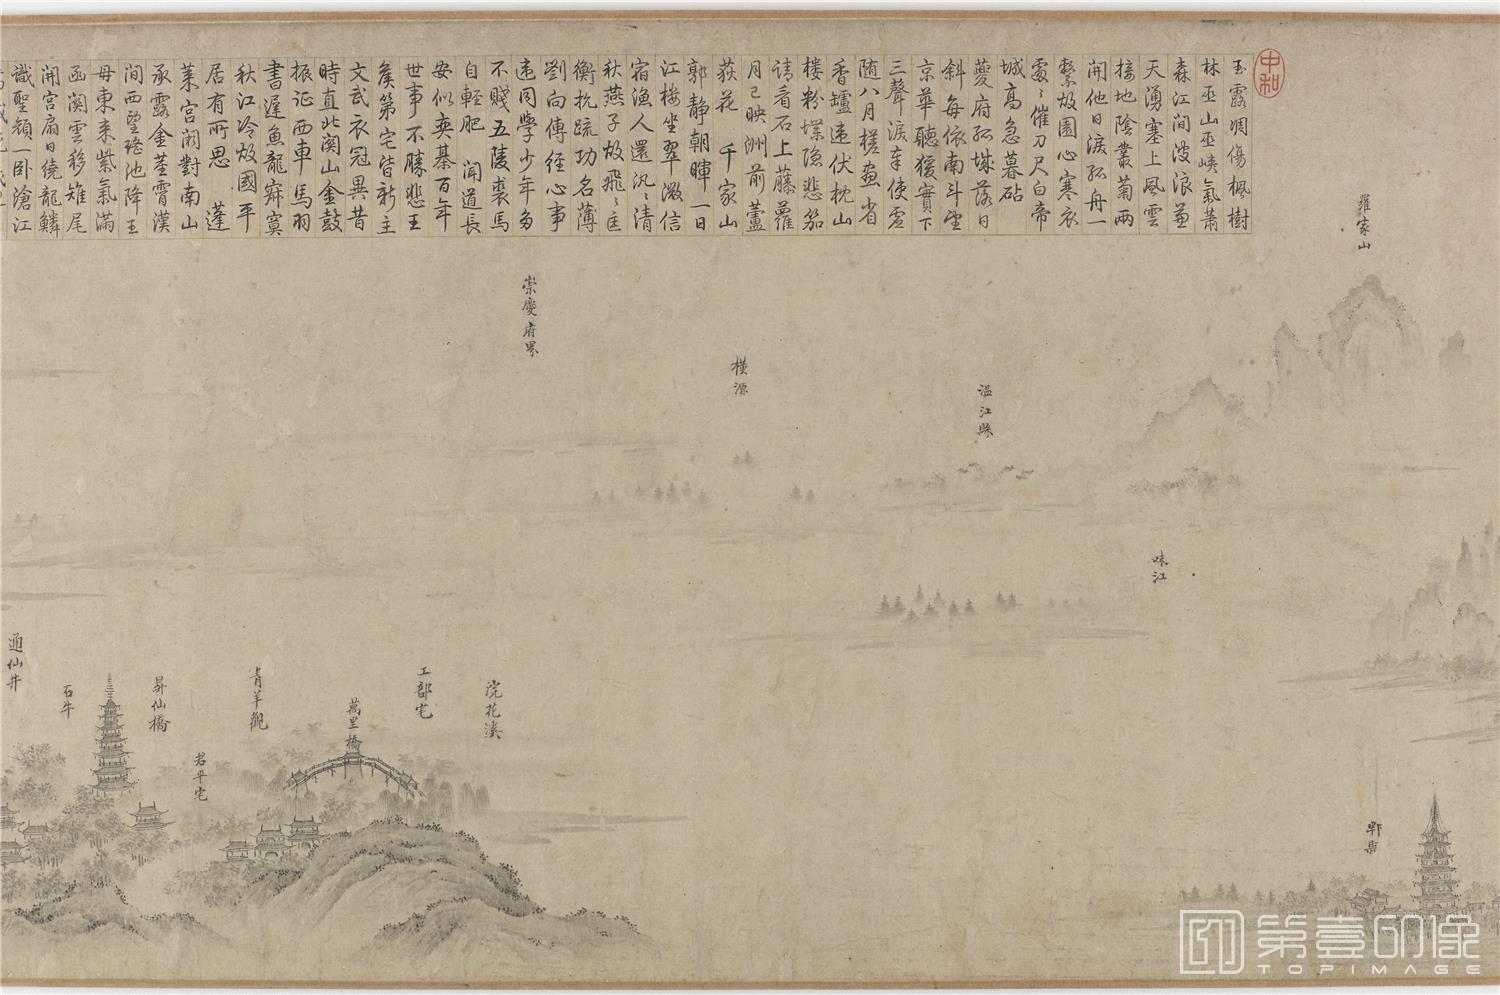 中和
玉露凋傷楓樹
林巫山巫峽氣蕭
森江間波浪兼
天湧塞上風雲
接地陰叢菊兩
開他日淚孤舟一
繫故園心寒衣
處〻催刀尺白帝
城高急暮砧
夔府孤城落日
斜每依南斗望
京華聽猨實下
三聲淚奉使虛
随八月槎畫省
香罏違伏枕山
樓粉堞隐悲笳
請看石上藤蘿
月已映洲前蘆
荻花 千家山
郭静朝暉一日
江樓坐翠微信
宿漁人還汎〻清
秋燕子故飛〻匡
衡抗疏功名薄
劉向傳經心事
違同學少年多
不賤五陵裘馬
自輕肥 聞道長
安似奕棊百年
世事不勝悲王
矦第宅皆新主
文武衣冠異昔
時直北関山金鼓
振征西車馬羽
書遲魚龍寂寞
秋江冷故國平
居有所思 蓬
莱宮闕對南山
承露金莖霄漢
間西望瑤池降王
母東来紫氣滿
函関雲移雉尾
開宮扇日繞龍鱗
識聖顔一卧滄江
羅家山
崇慶府界
横源
温江縣
味江
浣花溪
工部宅
萬里橋
青羊觀
君平宅
昇仙橋
石牛
通仙井
第壹印像
TOPIMAGE